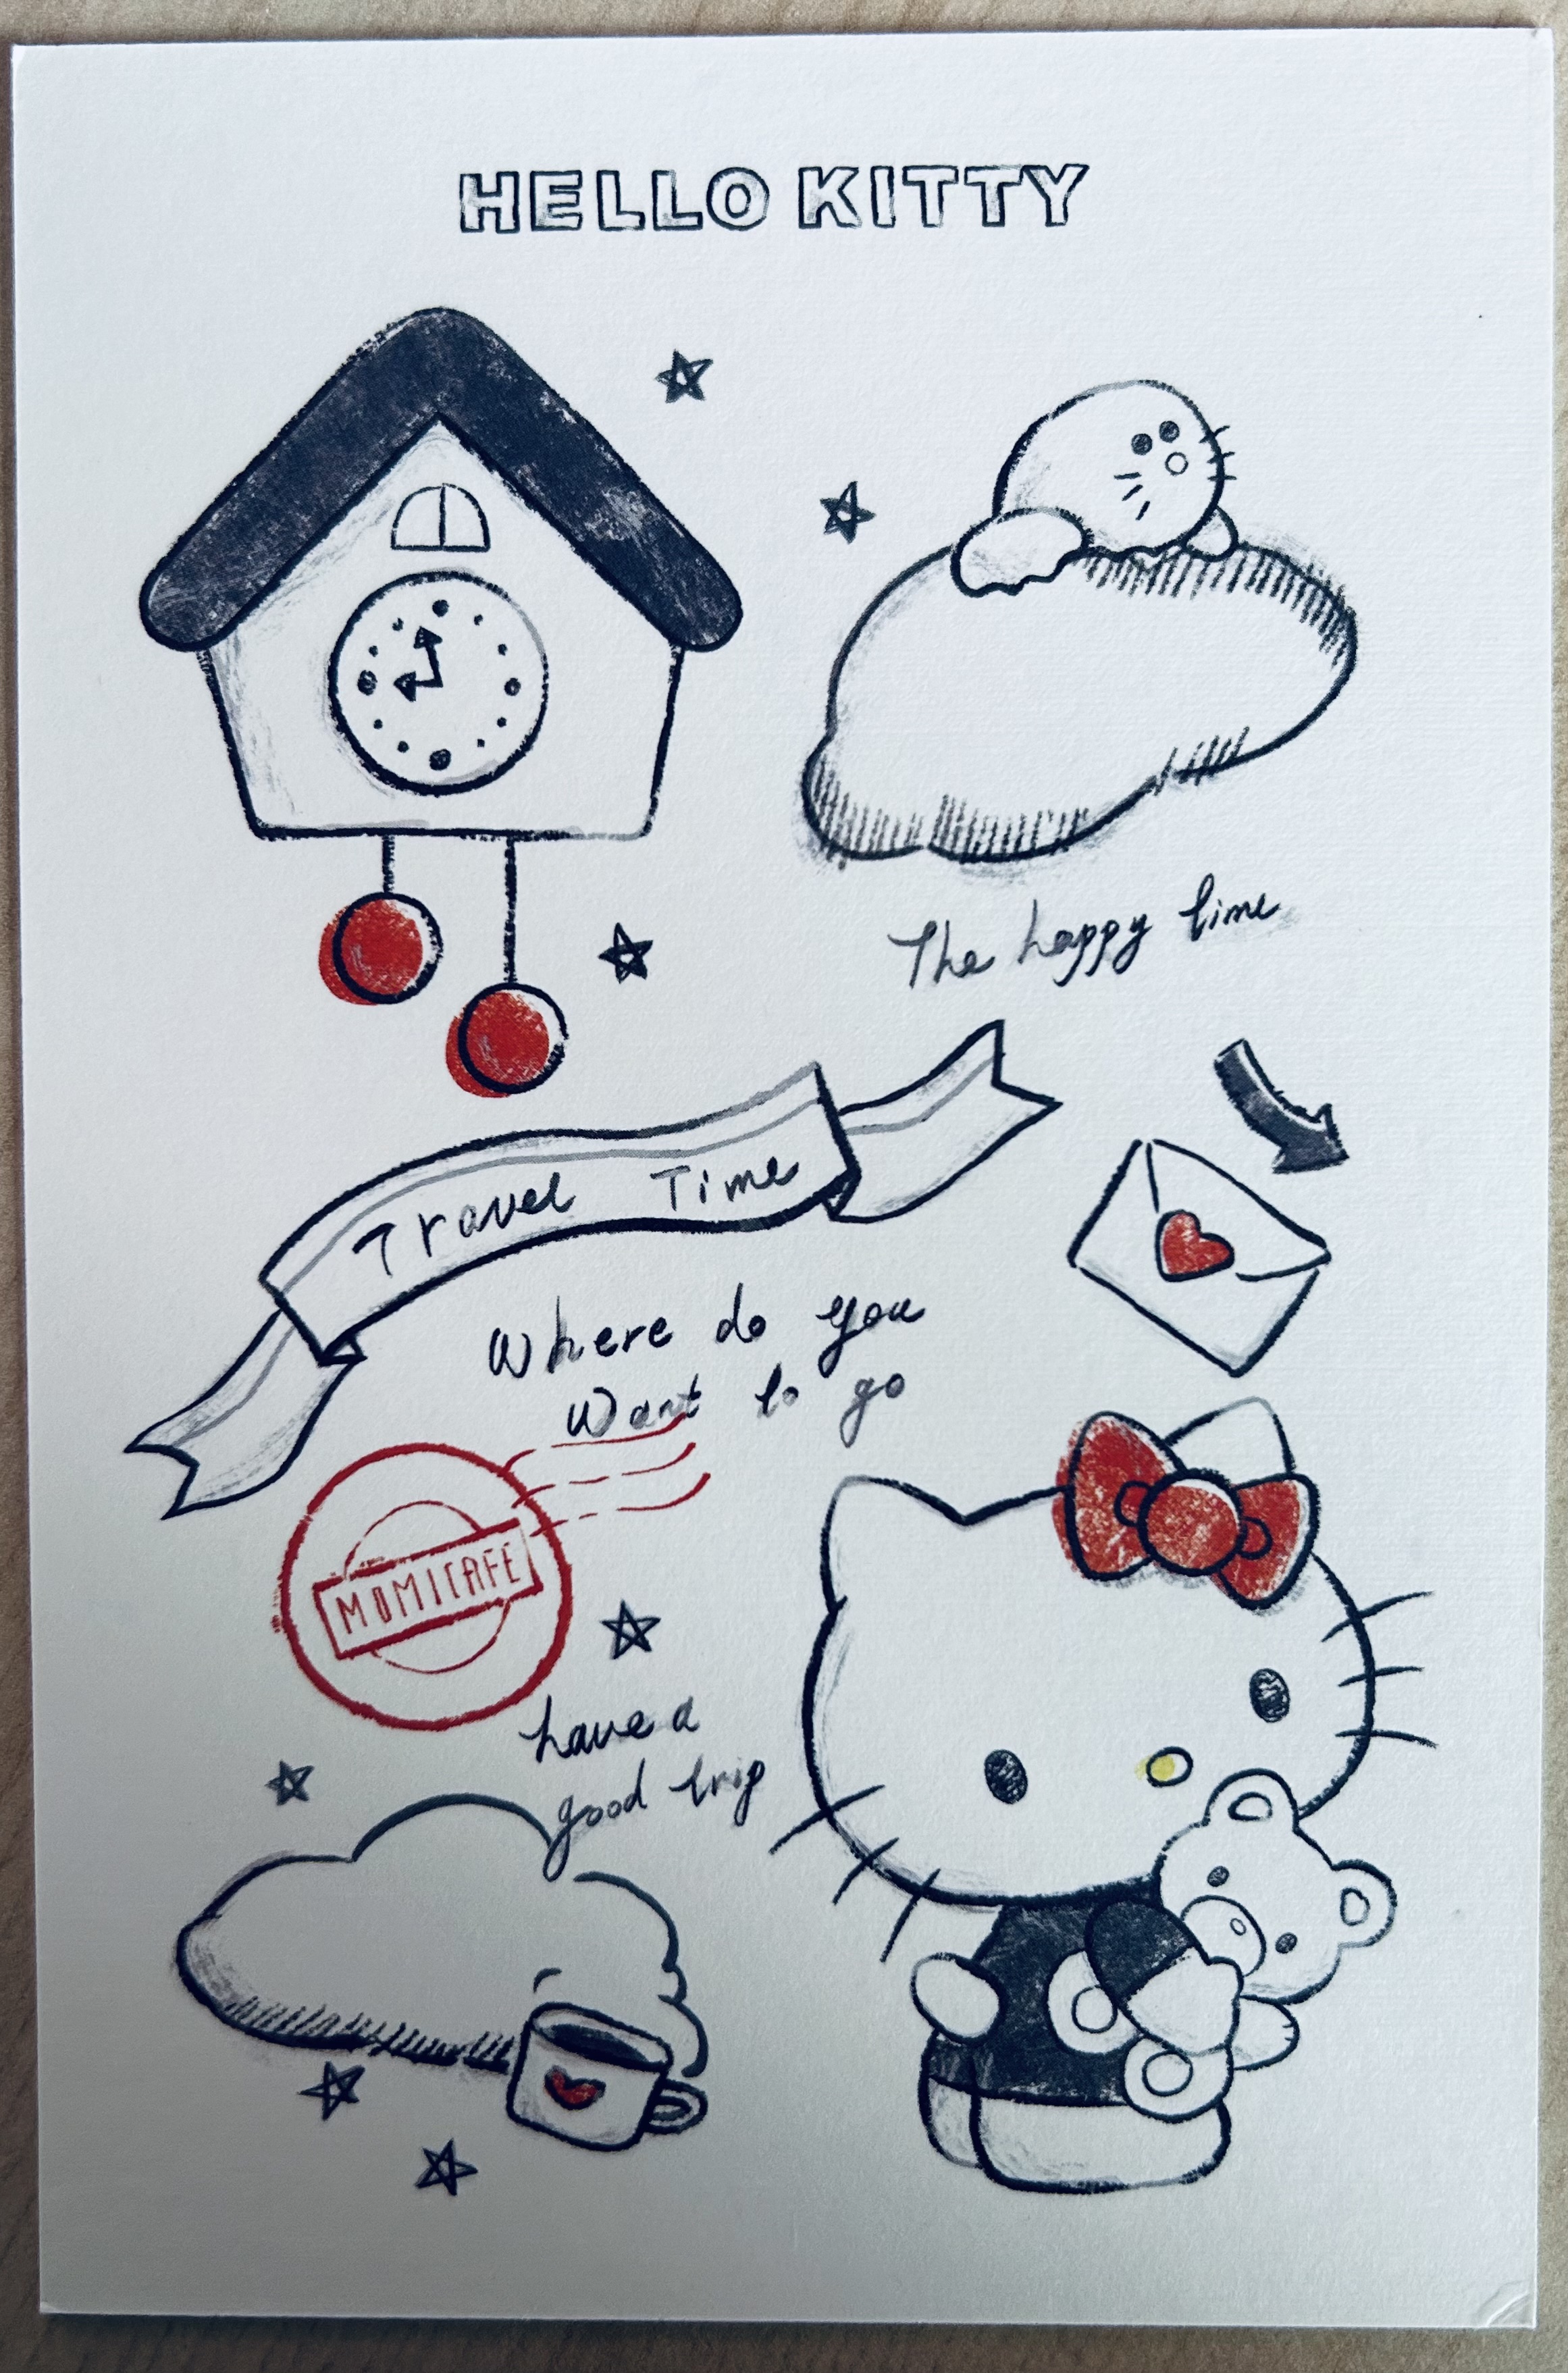 HELLO KITTY
The happy time
Travel Time
Where do you
Want to go
MOMICAFE
have a
good trip